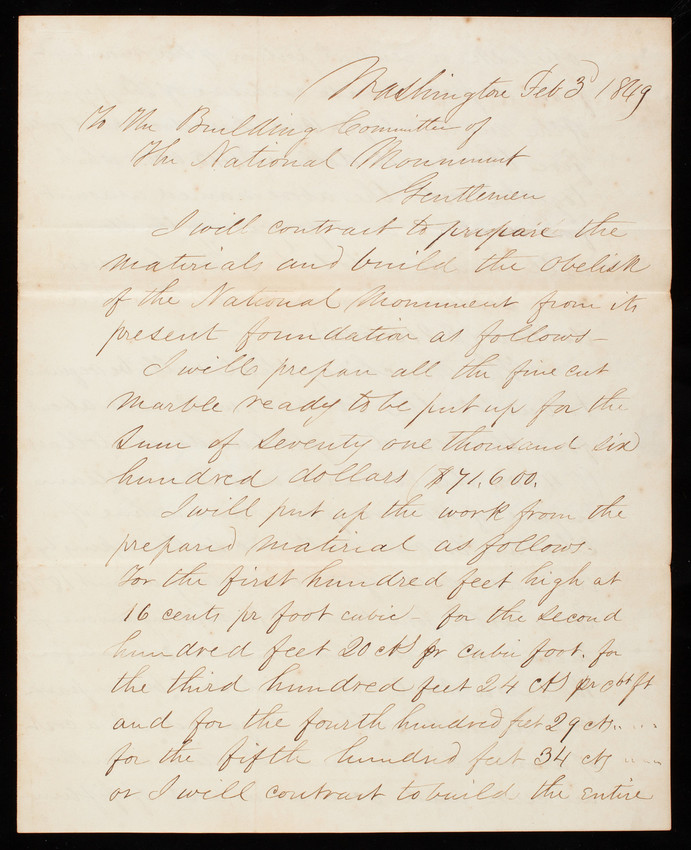 Washington Feb 3d 1849
To The Building Committee of
The National Monument
Gentlemen
I will contract to prepare the
materials and build the obelisk
of the National Monument from its
present foundation as follows -
I will prepare all the fine cut
marble ready to be put up for the
sum of seventy one thousand six
hundred dollars ($71,600.
I will put up the work from the
prepared material as follows.
For the first hundred feet high at
16 cents pr foot cubic - for the second
hundred feet 20 cts pr cubic foot. for
the third hundred feet 24 cts pr cbt ft
and for the fourth hundred feet 29 cts.....
for the fifth hundred feet 34 cts .....
or I will contract to build the entire